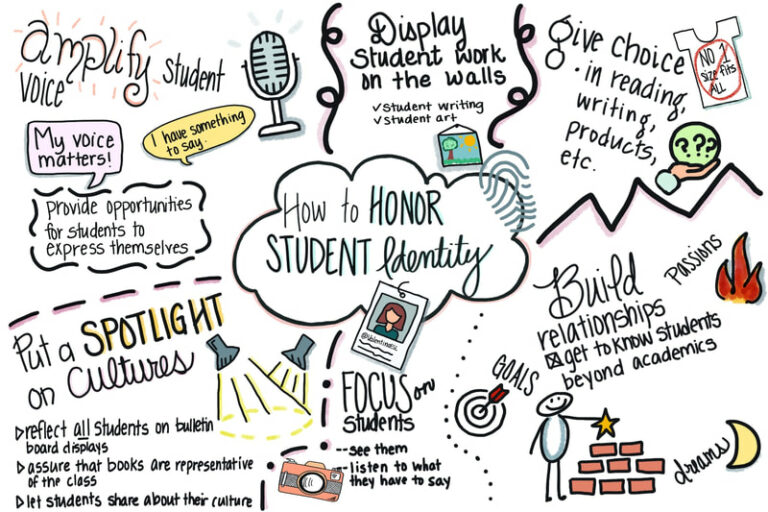 amplify student
voice
My voice
matters!
I have something
to say.
provide opportunities
for students to
express themselves
Display
Student work
on the walls
✓Student writing
✓Student art
Give choice
in reading,
writing,
products,
etc.
NO 1
size fits
ALL
???
How to HONOR
STUDENT Identity
Put a SPOTLIGHT
on Cultures
▷reflect all students on bulletin
board displays
▷assure that books are representative
of the class
▷let students share about their culture
FOCUS on
Students
--see them
--listen to what
they have to say
Build
relationships
☒get to know students
beyond academics
Passions
GOALS
dreams